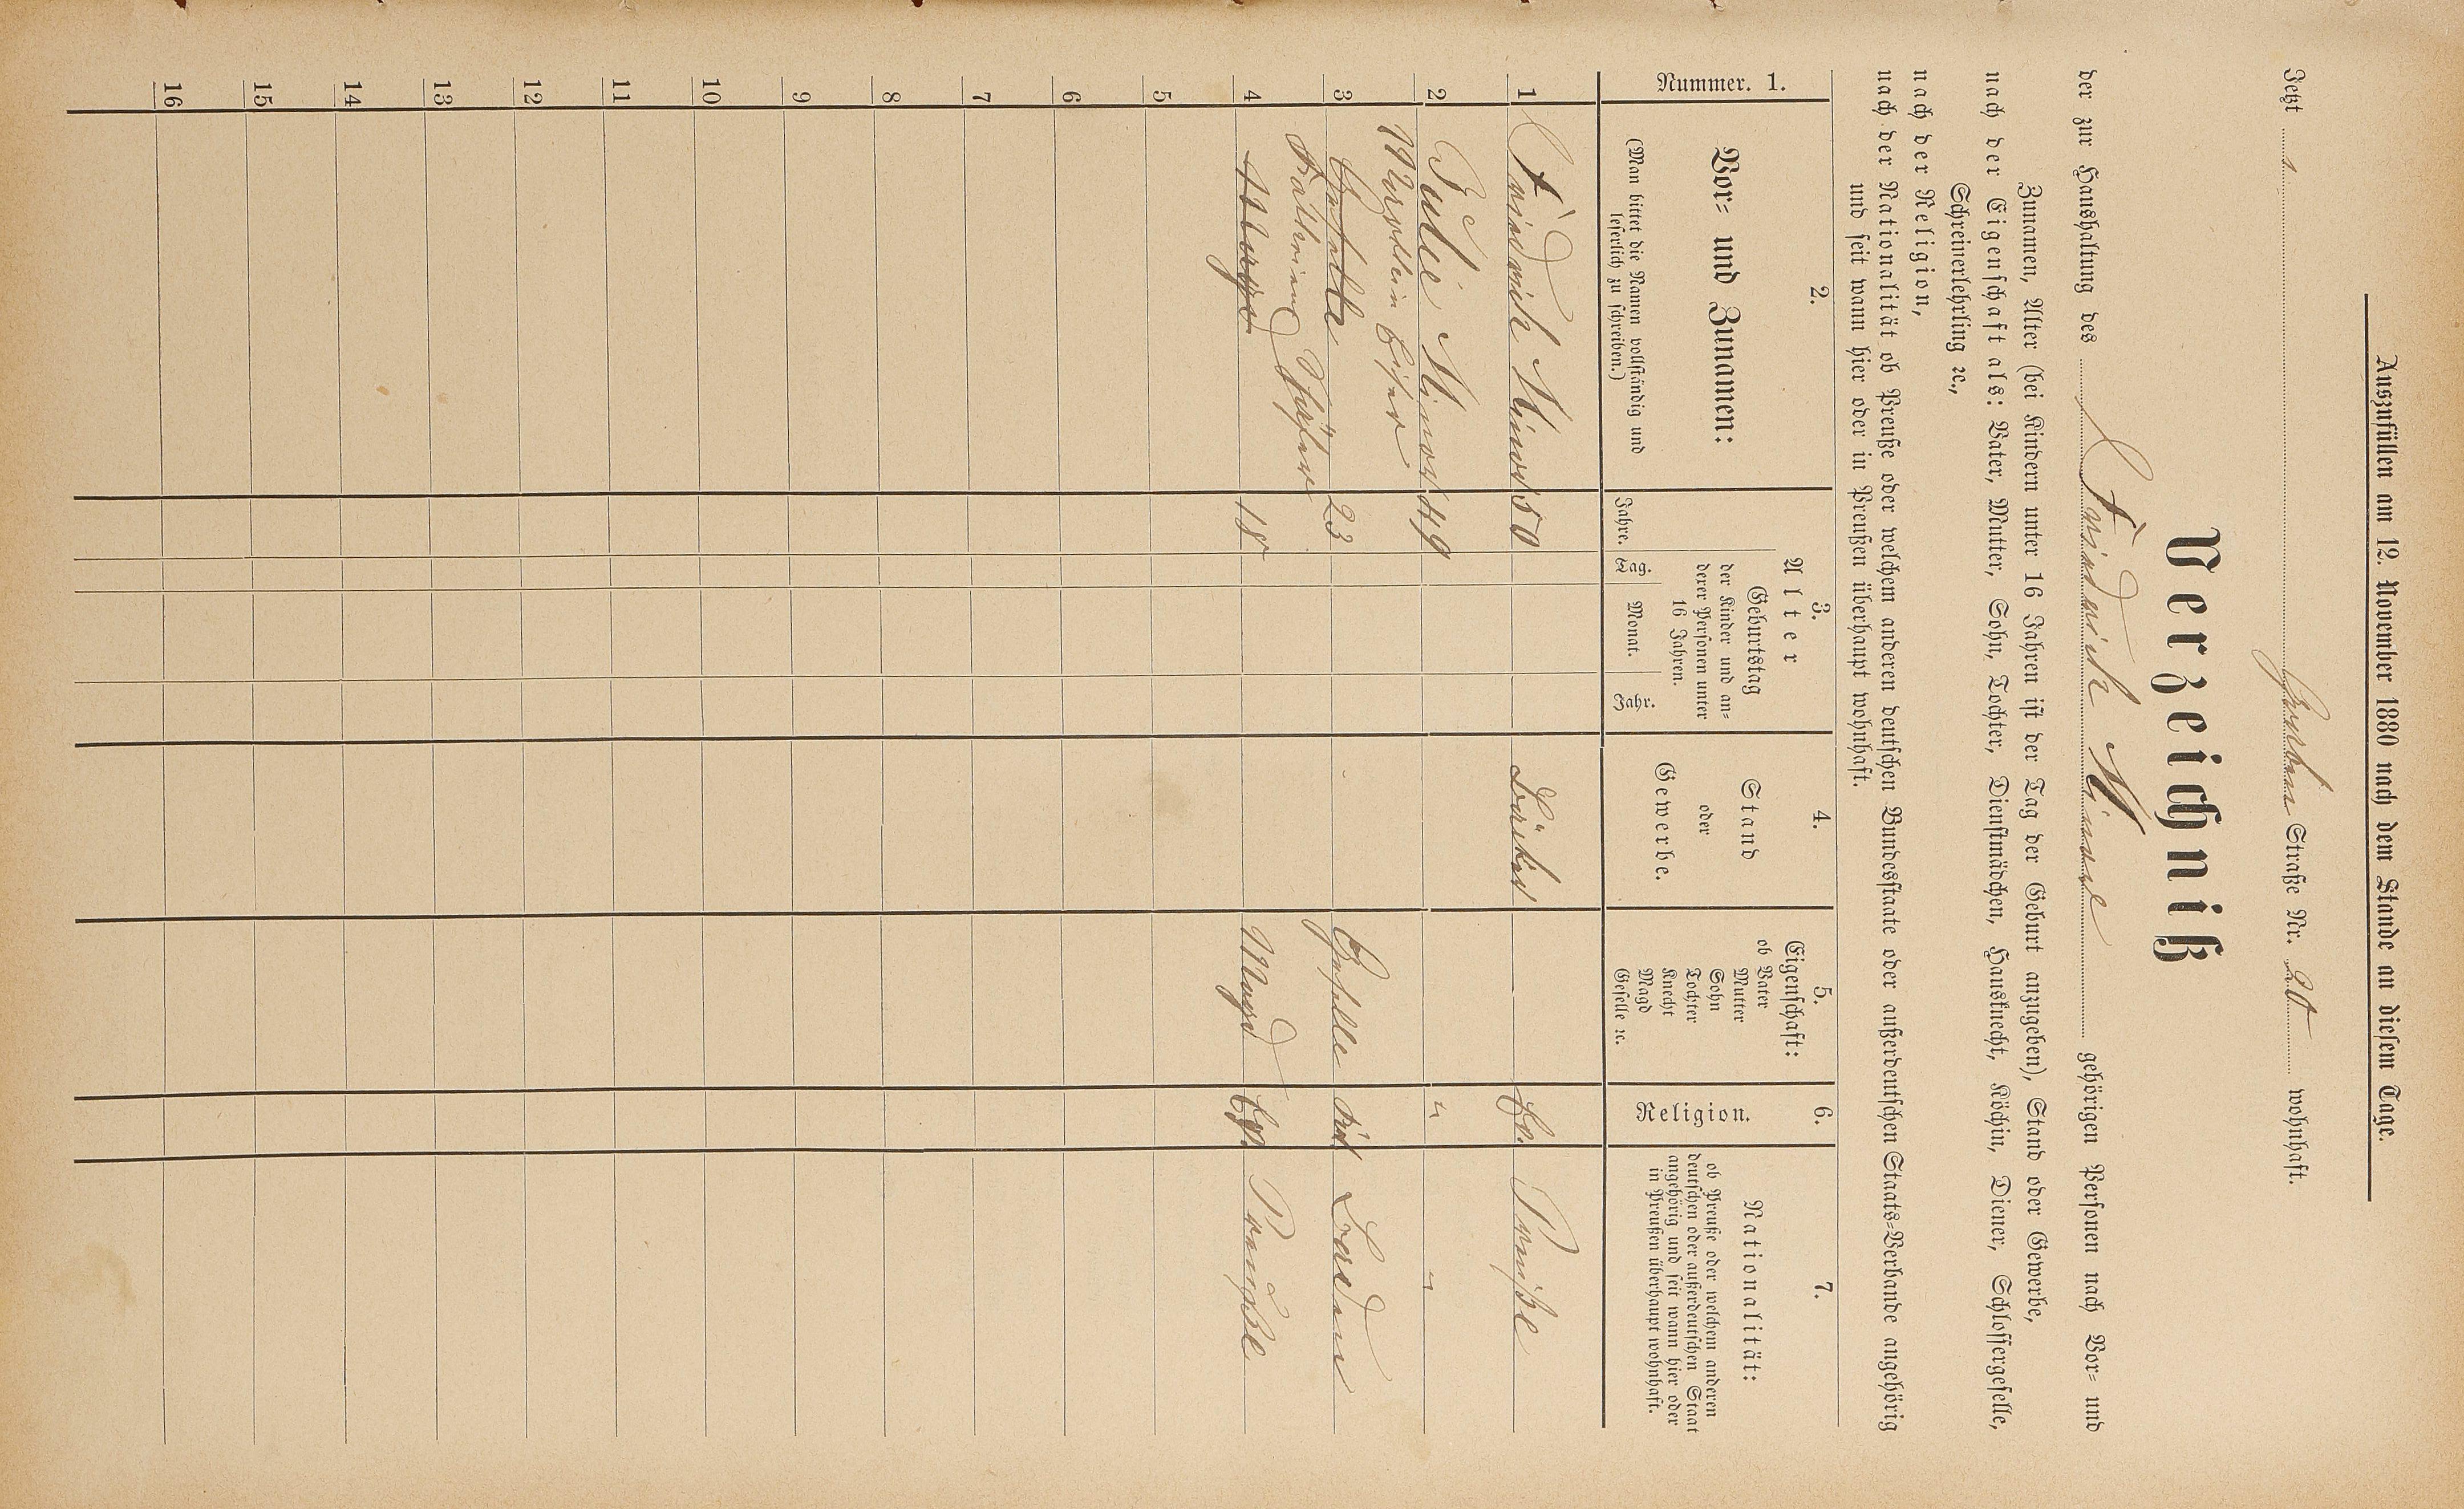 Auszufüllen am 12. November 1880 nach dem Stande an diesem Tage.
Jetzt Graben Straße Nr. 20 wohnhaft.
Verzeichniß
der zur Haushaltung des Friedrich Minor gehörigen Personen nach Vor- und
Zunamen, Alter (bei Kindern unter 16 Jahren ist der Tag der Geburt anzugeben), Stand oder Gewerbe,
nach der Eigenschaft als: Vater, Mutter, Sohn, Tochter, Dienstmädchen, Hausknecht, Köchin, Diener, Schlossergeselle,
Schreinerlehrling ꝛc.,
nach der Religion,
nach der Nationalität ob Preuße oder welchem anderen deutschen Bundesstaate oder außerdeutschen Staats-Verbande angehörig
und seit wann hier oder in Preußen überhaupt wohnhaft.
Nummer. 1.
2.
Vor- und Zunamen:
(Man bittet die Namen vollständig und
leserlich zu schreiben.)
3.
Alter
Jahre.
Geburtstag
der Kinder und an-
derer Personen unter
16 Jahren.
Tag. Monat. Jahr.
4.
Stand
oder
Gewerbe.
5.
Eigenschaft:
ob Vater
Mutter
Sohn
Tochter
Knecht
Magd
Geselle ꝛc.
6.
Religion.
7.
Nationalität:
ob Preuße oder welchem anderen
deutschen oder außerdeutschen Staat
angehörig und seit wann hier oder
in Preußen überhaupt wohnhaft.
1 Friedrich Minor 50 Ev. Preuße
2 Julie Minor 49 " "
3 Geselle 23 Geselle Baden
4 Magd 18 Magd Ev. Preuße
5
6
7
8
9
10
11
12
13
14
15
16